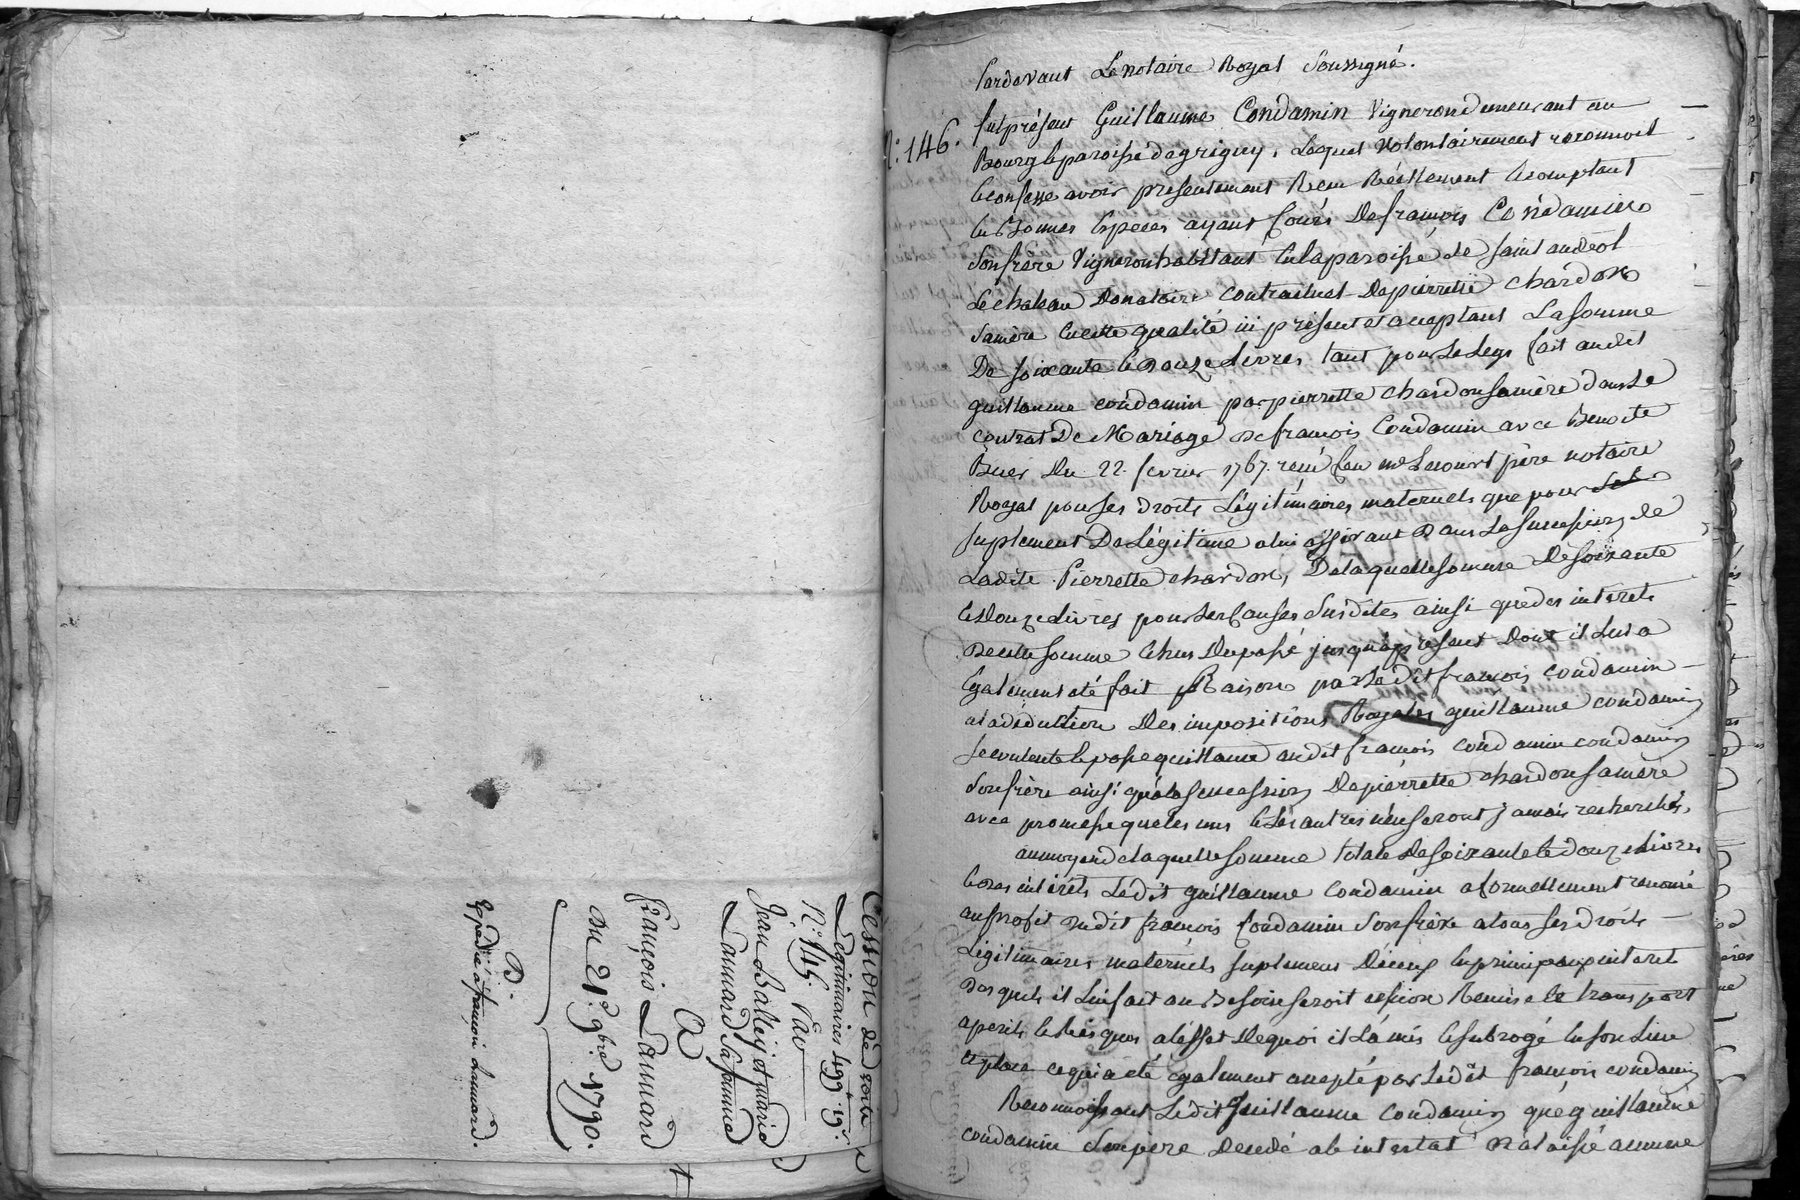 Cession de droits
Légitimaires 499.# 19.s
N.° 145. Par
Jean Laballey et marie
Laumard Sa femme
A
François Laumard
Du 21.e 9bre 1790.
D.
Expédié à françois Laumard.
Pardevant Le notaire Royal Soussigné.
N.° 146.
fut présent Guillaume Condamin Vigneron demeurant au
Bourg & paroisse de grigny, Lequel Volontairement reconnoit
& confesse avoir presentement Reçu Réellement & comptant
en Bonnes Especes ayant Cours De françois Condamin
Son frere Vigneron habitant En la paroisse de saint andéol
Le chateau Donataire contractuel De pierrette chardon
Sa mère En cette qualité ici présent et acceptant La Somme
De soixante & Douze Livres, tant pour Le Legs fait audit
guillaume condamin par pierrette chardon Sa mère dans Le
contrat De Mariage de françois Condamin avec Benoite
Du 22. fevrier 1767. reçu feu me Lecourt père notaire
Royal pour Ses Droits Légitimaires maternels que pour
Suplement De Légitime a lui afférant Dans La Succession de
Ladite Pierrette chardon, De laquelle Somme De Soixante
& Douze Livres pour Les Causes Susdites ainsi que des interets
De cette Somme Echus Du passé jusqu'à présent Dont il Lui a
Egalement été fait Raison par Ledit françois condamin
a la déduction Des impositions Royales guillaume condamin
Se contente & passe quittance audit françois condamin condamin
Son frère ainsi qu'à la Succession De pierrette chardon Sa mère
avec promesse que Les uns & Les autres n'en Seront jamais recherchés,
au moyen de laquelle Somme totale De Soixante & douze Livres
& des interets Ledit guillaume condamin a formellement renoncé
au profit dudit françois Condamin Son frère a tous Ses Droits
Légitimaires maternels Suplement D'iceux En principaux interets
Desquels il Lui fait au Besoin Seroit cession Remise & transport
a perils & Risques a l'effet De quoi il L'a mis & Subrogé En Son Lieu
& place ce qui a été Egalement accepté par Ledit françois condamin
Reconnoissant Ledit Guillaume condamin que guillaume
condamin Son pere Decedé ab intestat N'a laissé aucune